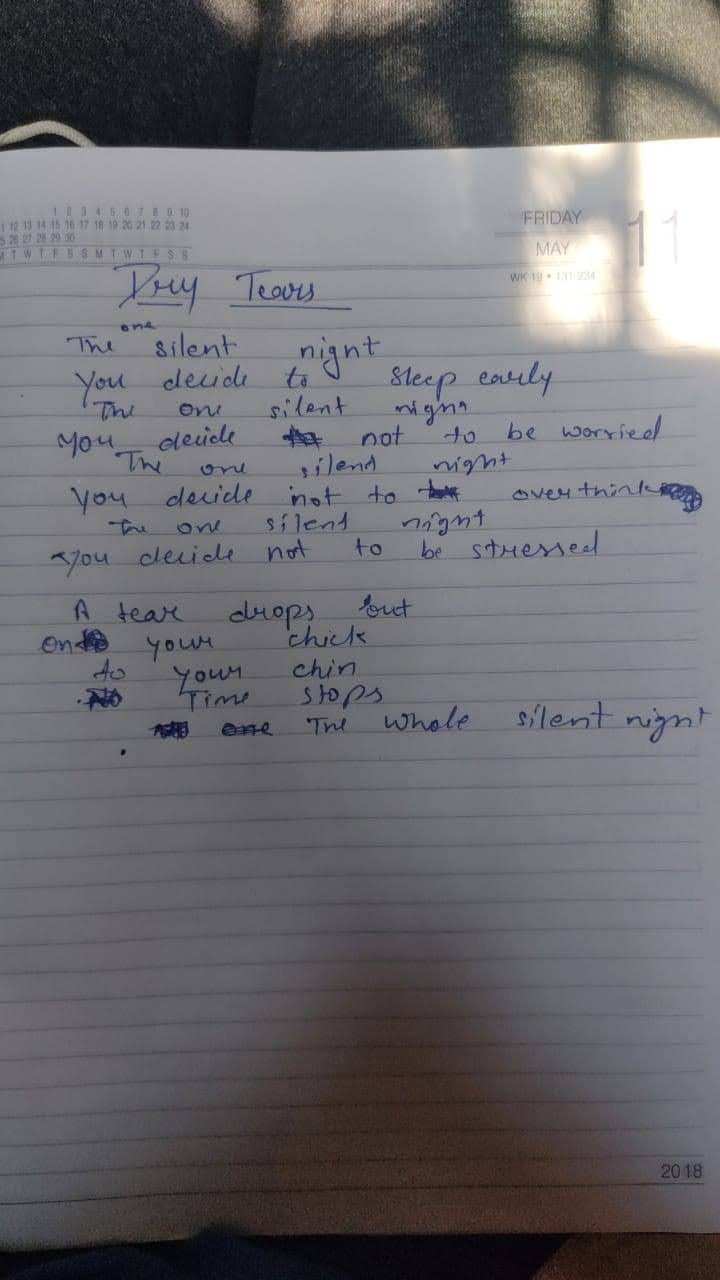 1 2 3 4 5 6 7 8 9 10
11 12 13 14 15 16 17 18 19 20 21 22 23 24
25 26 27 28 29 30
M T W T F S S M T W T F S S
FRIDAY
11
MAY
WK 19 • 131-234
Dry Tears
one
The silent night
You decide to sleep early
The one silent night
You decide not to be worried
The one silend night
You decide not to overthink
The one silend night
You decide not to be stressed
A tear drops out
on your chick
to your chin
Time stops
one The whole silent night
2018